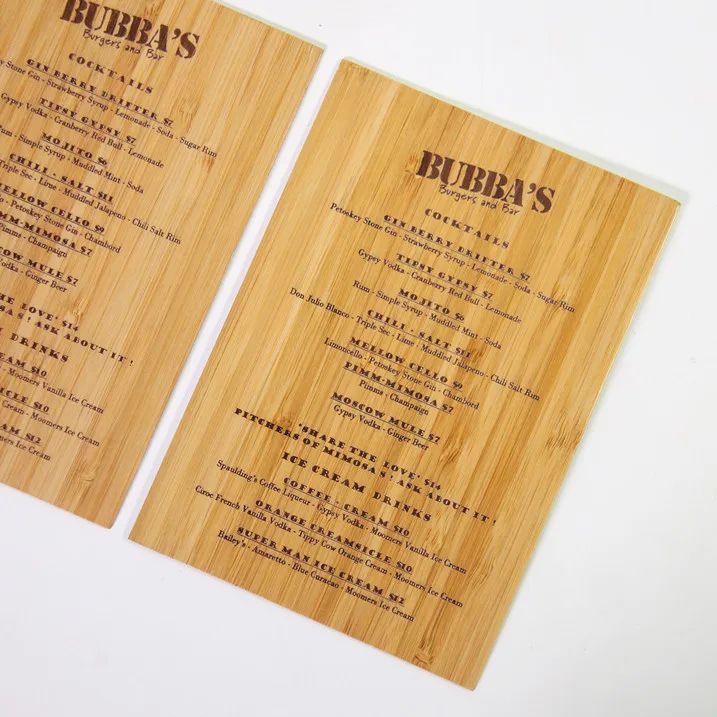 BUBBA'S
Burgers and Bar
COCKTAILS
GIN BERRY DRIFTER $7
Stone Gin - Strawberry Syrup - Lemonade - Soda - Sugar Rim
TIPSY GYPSY $7
Gypsy Vodka - Cranberry Red Bull - Lemonade
MOJITO $6
Rum - Simple Syrup - Muddled Mint - Soda
CHILI - SALT $11
Triple Sec - Lime - Muddled Jalapeno - Chili Salt Rim
MELLOW CELLO $9
- Petoskey Stone Gin - Chambord
PIMM-MIMOSA $7
Pimms - Champaign
MOSCOW MULE $7
Vodka - Ginger Beer
THE LOVE' $14
ASK ABOUT IT!
DRINKS
CREAM $10
- Moomers Vanilla Ice Cream
$10
Cream - Moomers Ice Cream
CREAM $12
Moomers Ice Cream
BUBBA'S
Burgers and Bar
COCKTAILS
GIN BERRY DRIFTER $7
Petoskey Stone Gin - Strawberry Syrup - Lemonade - Soda - Sugar Rim
TIPSY GYPSY $7
Gypsy Vodka - Cranberry Red Bull - Lemonade
MOJITO $6
Rum - Simple Syrup - Muddled Mint - Soda
CHILI - SALT $11
Don Julio Blanco - Triple Sec - Lime - Muddled Jalapeno - Chili Salt Rim
MELLOW CELLO $9
Limoncello - Petoskey Stone Gin - Chambord
PIMM-MIMOSA $7
Pimms - Champaign
MOSCOW MULE $7
Gypsy Vodka - Ginger Beer
'SHARE THE LOVE' $14
PITCHERS OF MIMOSA'S ' ASK ABOUT IT!
ICE CREAM DRINKS
COFFEE - CREAM $10
Spaulding's Coffee Liqueur - Gypsy Vodka - Moomers Vanilla Ice Cream
ORANGE CREAMSICLE $10
Ciroc French Vanilla Vodka - Tippy Cow Orange Cream - Moomers Ice Cream
SUPER MAN ICE CREAM $12
Bailey's - Amaretto - Blue Curacao - Moomers Ice Cream